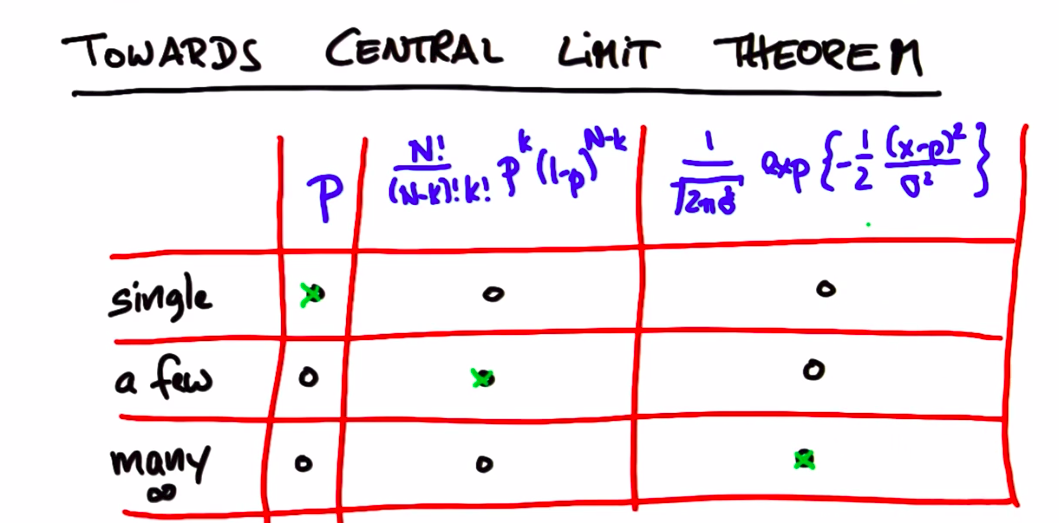 TOWARDS CENTRAL LIMIT THEOREM
p N!/((N-k)!k!) p^k (1-p)^(N-k) 1/√(2πσ²) exp{-1/2 (x-μ)²/σ²}
single
a few
many
∞